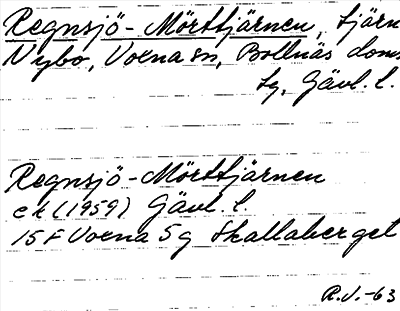 Regnsjö-Mörttjärnen, tjärn
Nybo, Voxna sn, Bollnäs doms
tg, Gävl. l.
Regnsjö-Mörttjärnen
ek (1959) Gävl. l.
15 F Voxna 5g Skallaberget
R.J.-63